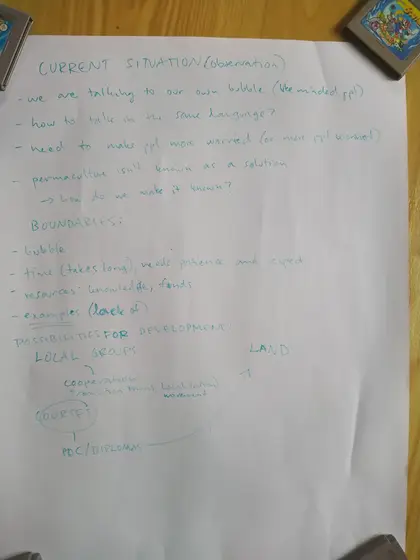 CURRENT SITUATION (observation)
- we are talking to our own bubble (like minded ppl)
- how to talk in the same language?
- need to make ppl more worried (or more ppl worried)
- permaculture isn't known as a solution
→ how do we make it known?
BOUNDARIES:
- bubble
- time (takes long), needs patience and
- resources: knowledge, funds
- examples (lack of)
POSSIBILITIES FOR DEVELOPMENT
LOCAL GROUPS
LAND
cooperation
movement
COURSES
PDC/DIPLOMA